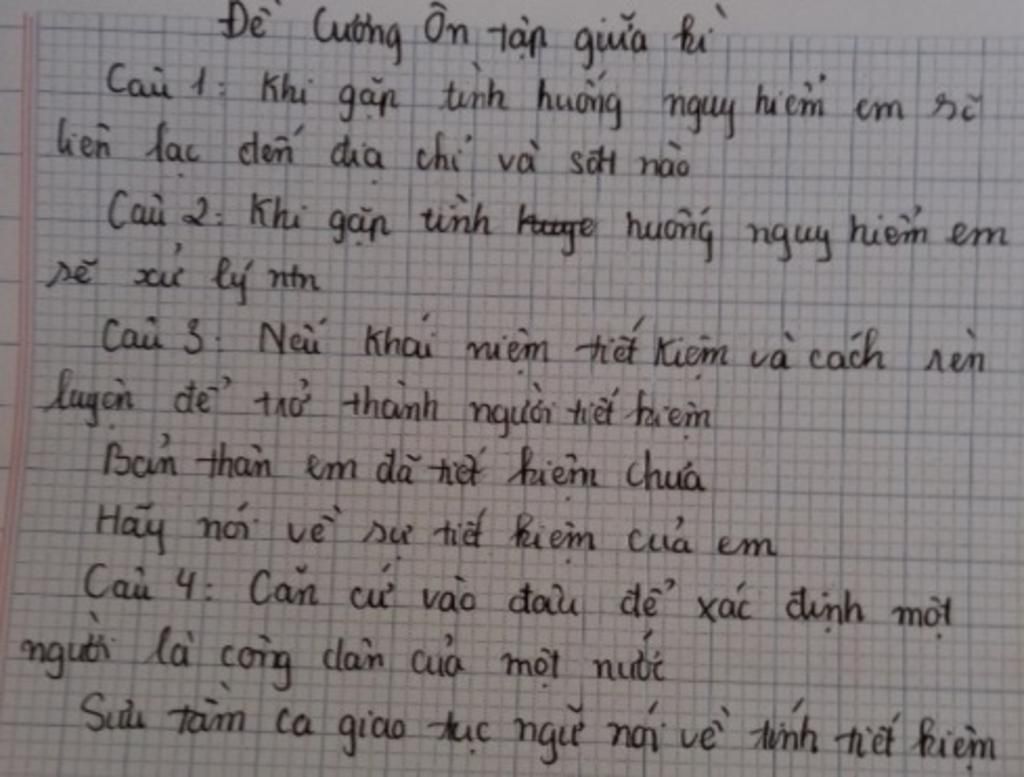 Đề Cương Ôn tập giữa kì
Câu 1: Khi gặp tình huống nguy hiểm em sẽ
liên lạc đến địa chỉ và sđt nào
Câu 2: Khi gặp tình huống nguy hiểm em
sẽ xử lý ntn
Câu 3: Nêu khái niệm tiết kiệm và cách rèn
luyện để trở thành người tiết kiệm
Bản thân em đã tiết kiệm chưa
Hãy nói về sự tiết kiệm của em
Câu 4: Căn cứ vào đâu để xác định một
người là công dân của một nước
Sưu tầm ca giao tục ngữ nói về tính tiết kiệm